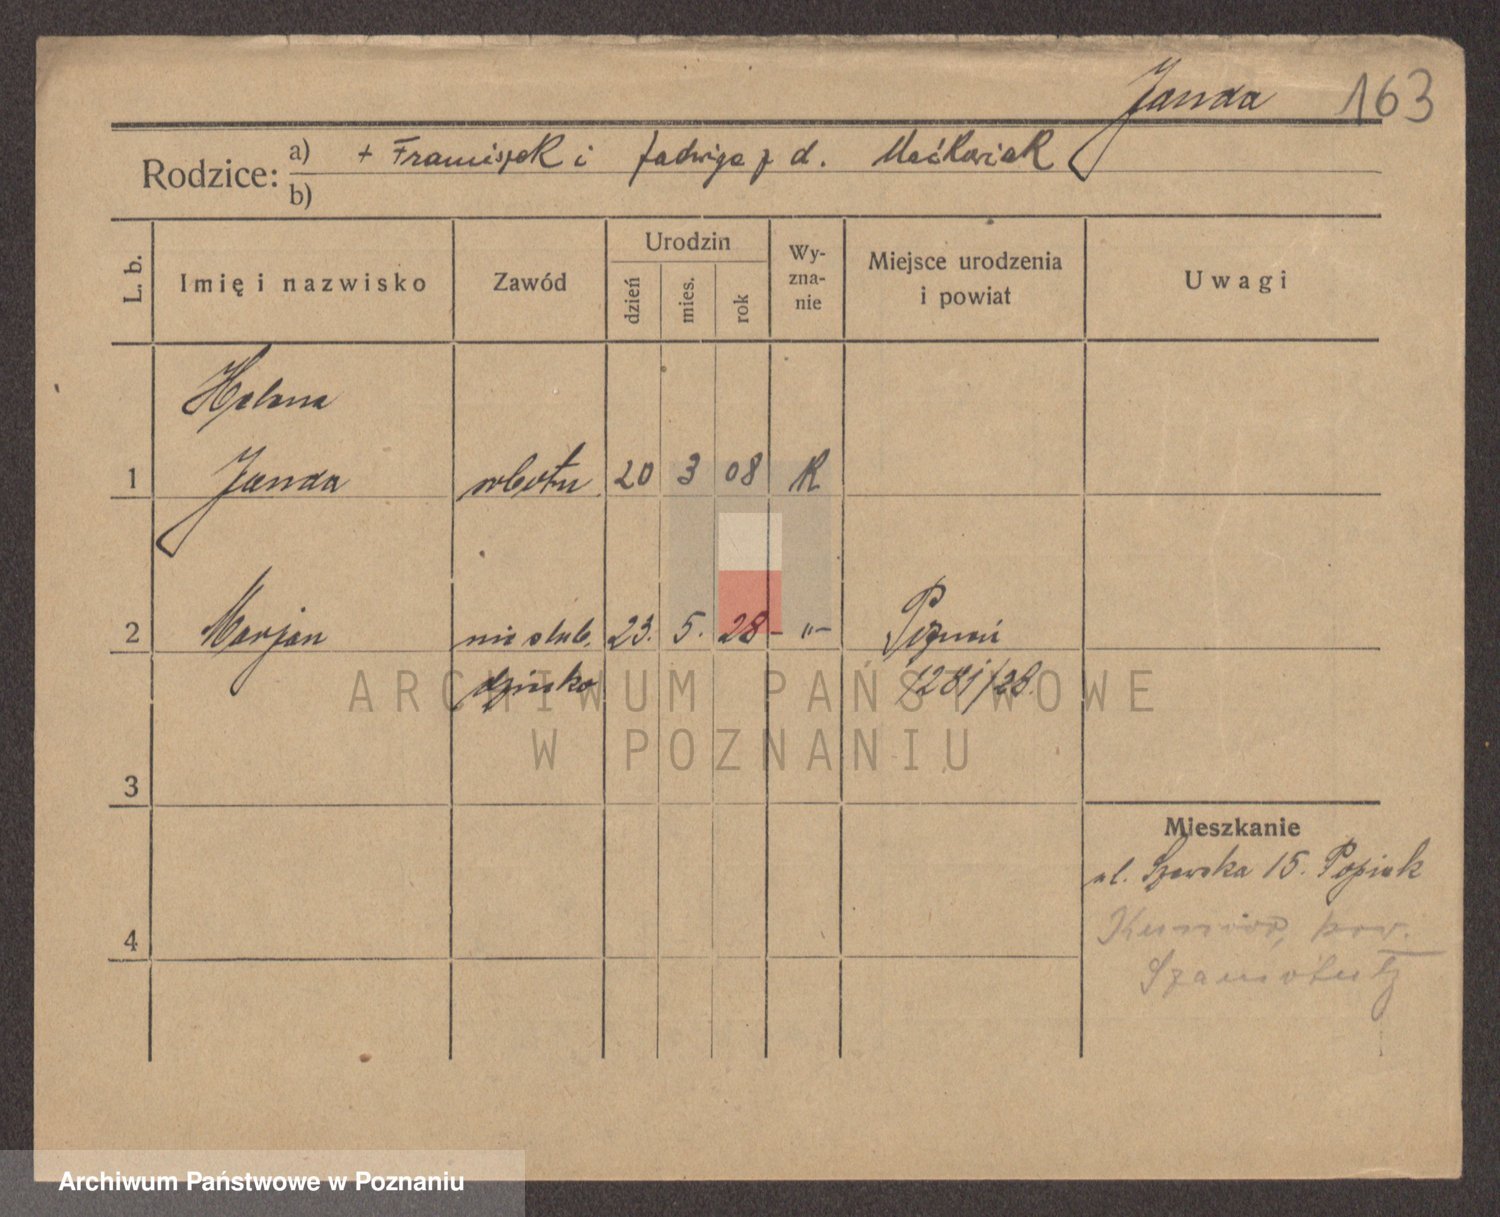 Janda 163
Rodzice: a) + Franciszek i Jadwiga z d. Maćkowiak
b)
L. b. Imię i nazwisko Zawód Urodzin dzień mies. rok Wy-zna-nie Miejsce urodzenia i powiat Uwagi
Helena
1 Janda robotn. 20 3 08 R
2 Marjan nieślub. 23. 5. 28 - „ - Poznań
dziecko 1281/28.
ARCHIWUM PAŃSTWOWE
W POZNANIU
3
Mieszkanie
ul. Szewska 15. Popiak
4
pow.
Szamotuły
Archiwum Państwowe w Poznaniu